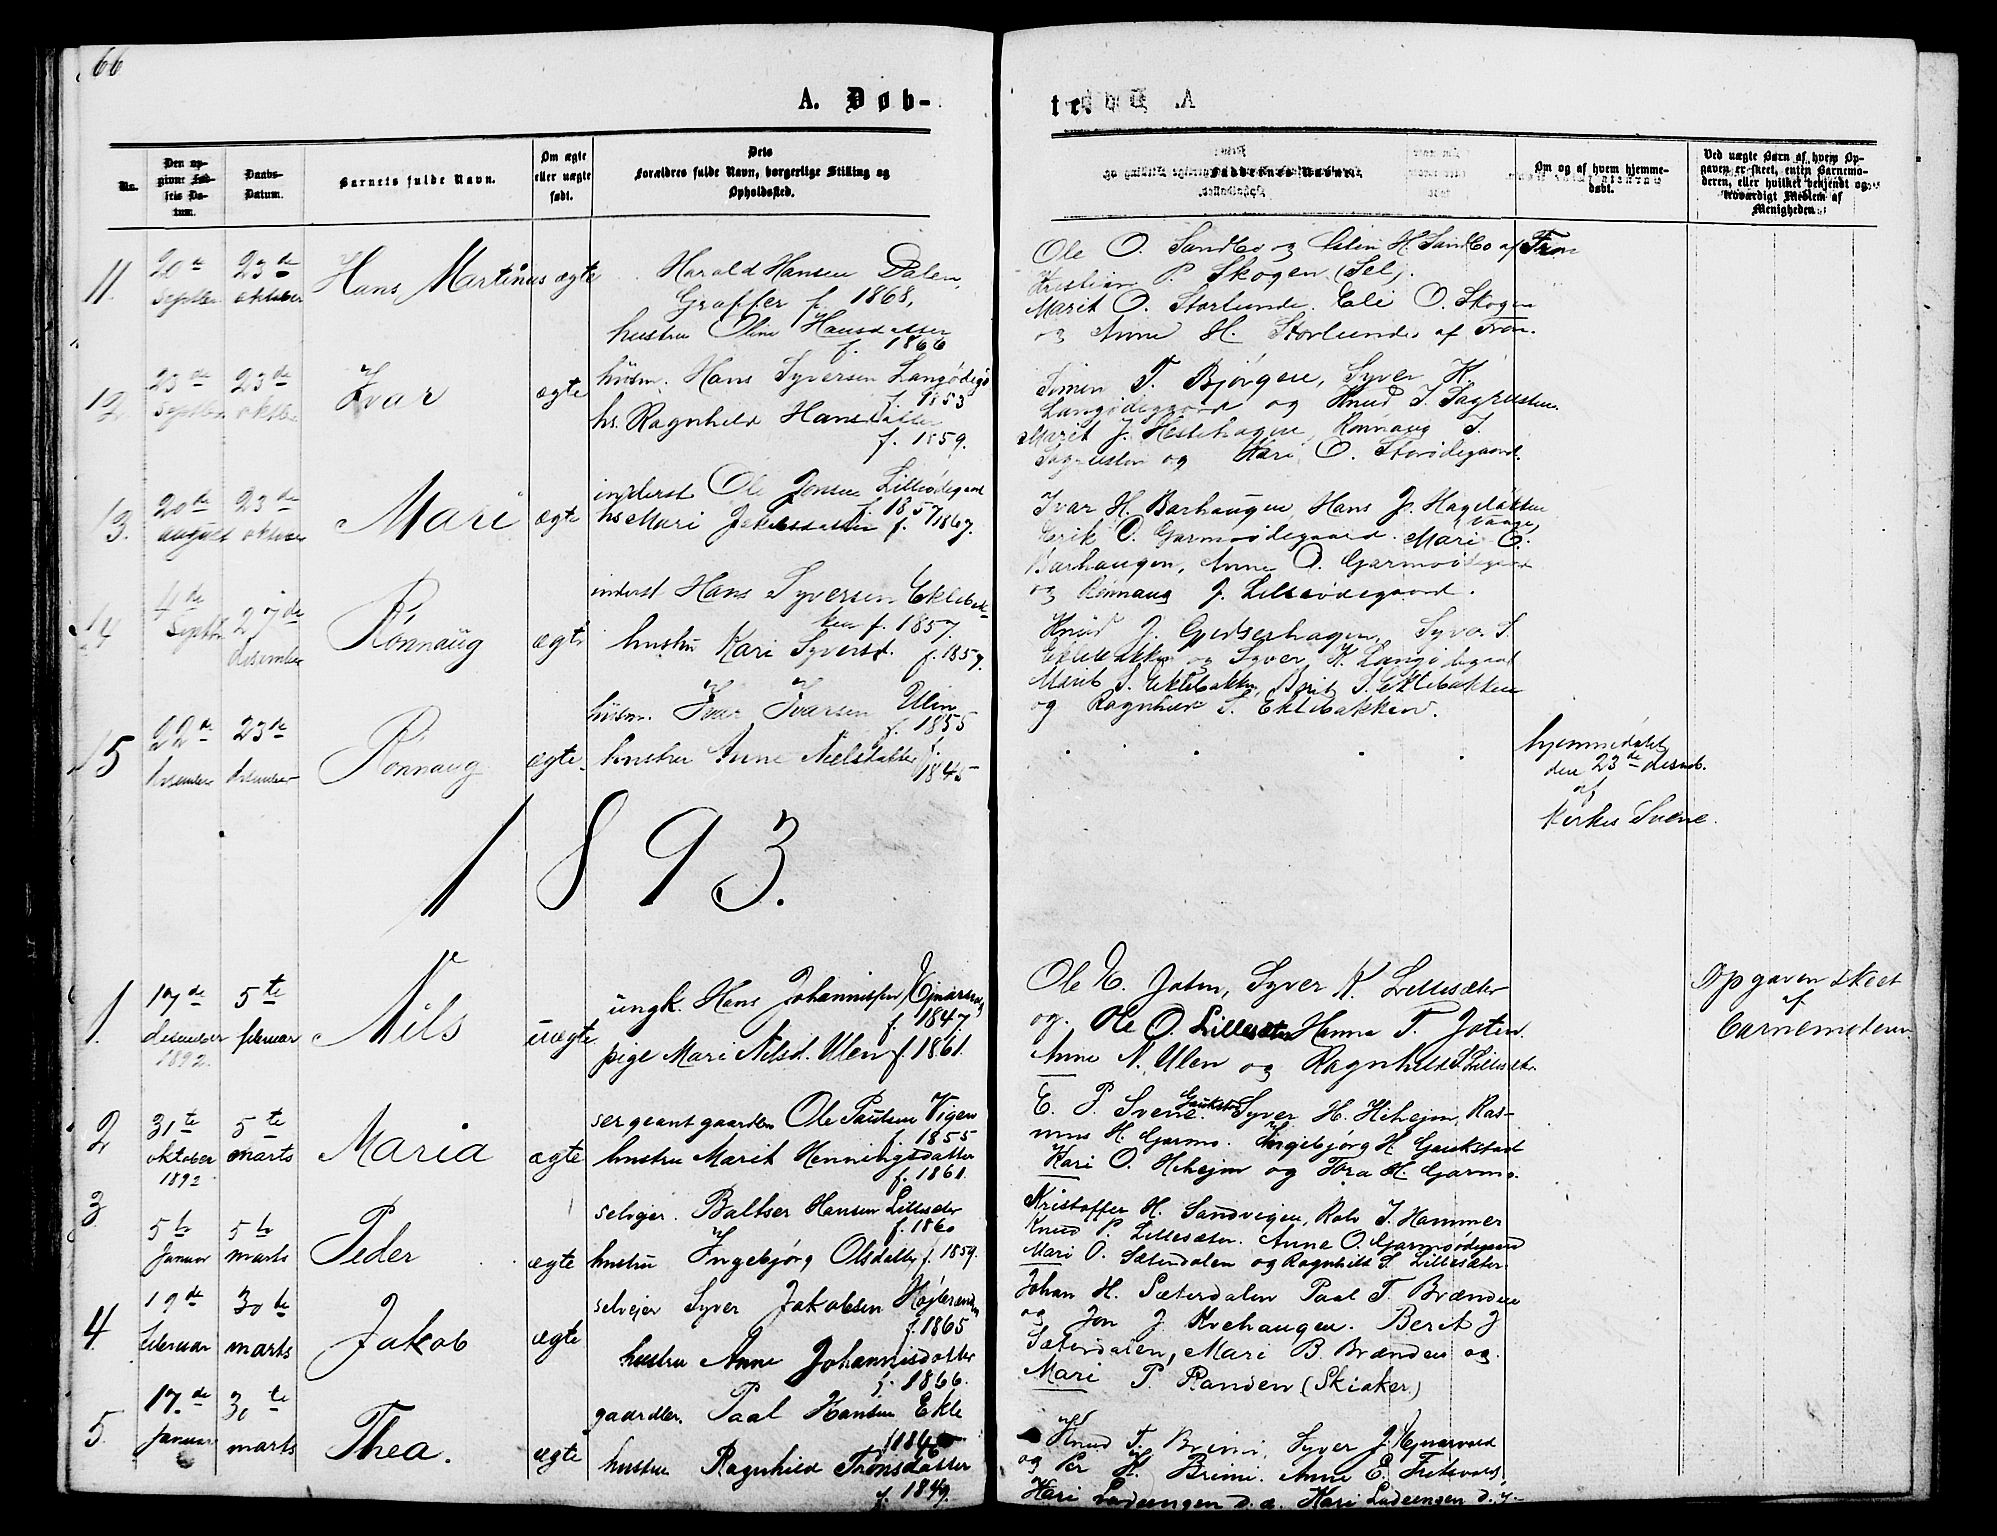 66
A. Døb-
te.
No.
Den opgivne Fødsels Datum.
Daabs-Datum.
Barnets fulde Navn.
Om ægte eller uægte født.
Dets Forældres fulde Navn, borgerlige Stilling og Opholdssted.
Faddernes Navne.
Om og af hvem hjemmedøbt.
Ved uægte Børn af hvem Opgaven er skeet, enten Barnemoderen, eller hvilket bekjendt og troværdigt Medlem af Menigheden.
11. 20de septbr 23de oktober Hans Martinus ægte Harald Hansen Dalen,
Graffer f. 1868,
hustru Oline Hansdatter
f. 1866
Ole O. Sandbo og Celin H. Sandbo af Fron
Kristian P. Skogen (Sel).
Marit O. Storlunde. Eli O. Skogen
og Anne H. Storlunde af Fron.
12. 23de septbr 23de oktbr Ivar ægte husm. Hans Syversen Langødegd
f. 1853
hs. Ragnhild Hansdatter
f. 1859.
Simen T. Bjørgen, Syver K.
Langødegaard og Knud I. Sagflaten.
Marit J. Hestehagen, Rønnaug I.
og Kari O. Storødegaard.
13. 20de august 23de oktober Mari ægte inderst Ole Jonsen Lilleødegaard
f. 1857
hs Mari Jakobsdatter f. 1867.
Ivar H. Barhaugen, Hans J. Hageløkken
Vaage,
Erik O. Garmoødegaard. Mari O.
Barhaugen, Anne O. Garmoødegaard
og Rønnaug J. Lilleødegaard.
14 4de septbr 27de desember Rønnaug ægte inderst Hans Syversen Eklebak-
ken f. 1857.
hustru Kari Syversd. f. 1857.
Knud J. Gjedsenhagen, Syver S.
Eklebakken og Syver K. Langødegaard
Marit S. Eklebakken, Brit S. Eklebakken
og Ragnhild S. Eklebakken.
15 22de desember 23de desember Rønnaug ægte. husm. Ivar Ivarsen Ulen
f. 1855
hustru Anne Nielsdatter f. 1845
hjemmedøbt
den 23de desemb.
af
Kirkes. Svene.
1893.
1. 17de desember 1892. 5te februar Nils uægte ungk. Hans Johannissen
f. 1847.
pige Mari Nilsd. Ulen f. 1861.
Ole E. Joten, Syver K. Lillesæter
og Ole O. Lillesæter Hanna T. Joten.
Anne N. Ulen og Ragnhild S. Lillesæter
Opgaven skeet
af
barnemoderen
2 31te oktober 1892. 5te marts Maria ægte sergeant gaardm. Ole Paulsen Vigen
f. 1855
hustru Marit Henningsdatter
f. 1861.
E. P. Svene. Gaukstad Syver H. Hihejm, Ras-
mus H. Garmo. Ingebjørg H. Gaukstad
Kari O. Hihejm og Tora H. Garmo.
3 5te januar 5te marts Peder ægte selvejer. Baltser Hansen Lillesæter
f. 1860
hustru Ingebjørg Olsdatter f. 1859.
Kristoffer H. Sandvigen, Rolv I. Hammer
Knud P. Lillesæter. Anne O. Garmoødegaard
Mari O. Sæterdalen og Ragnhild S. Lillesæter.
4. 19de februar 30te marts Jakob ægte selvejer Syver Jakobsen Højbrenden
f. 1865
hustru Anne Johannisdatter
f. 1866.
Johan H. Sæterdalen Paal T. Brænden
og Jon J. Kvehaugen. Berit J
Sæterdalen, Mari B. Brænden og
Mari P. Randen (Skiaker)
5. 17de januar 30te marts Thea. ægte gaardbr. Paal Hansen Ekle
hustru Ragnhild Trønsdatter
f. 1849.
Knud T. Brimi, Syver J.
og Per H. Brimi. Anne E.
Kari Ladeengen d. æ. Kari Ladeengen d. y.